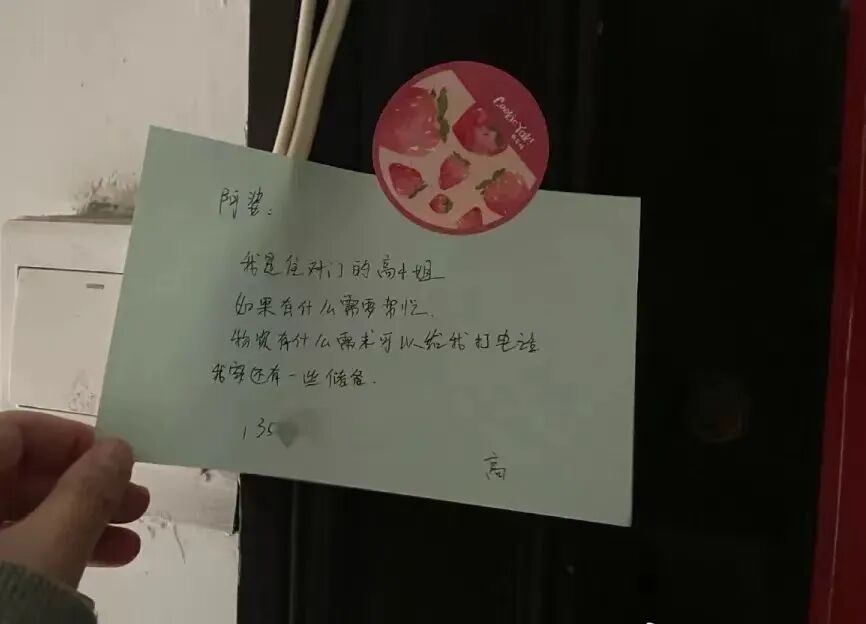 Cookie Yaki
阿婆：
我是住对门的高小姐
如果有什么需要帮忙.
物资有什么需求可以给我打电话
我家还有一些储备.
135
高